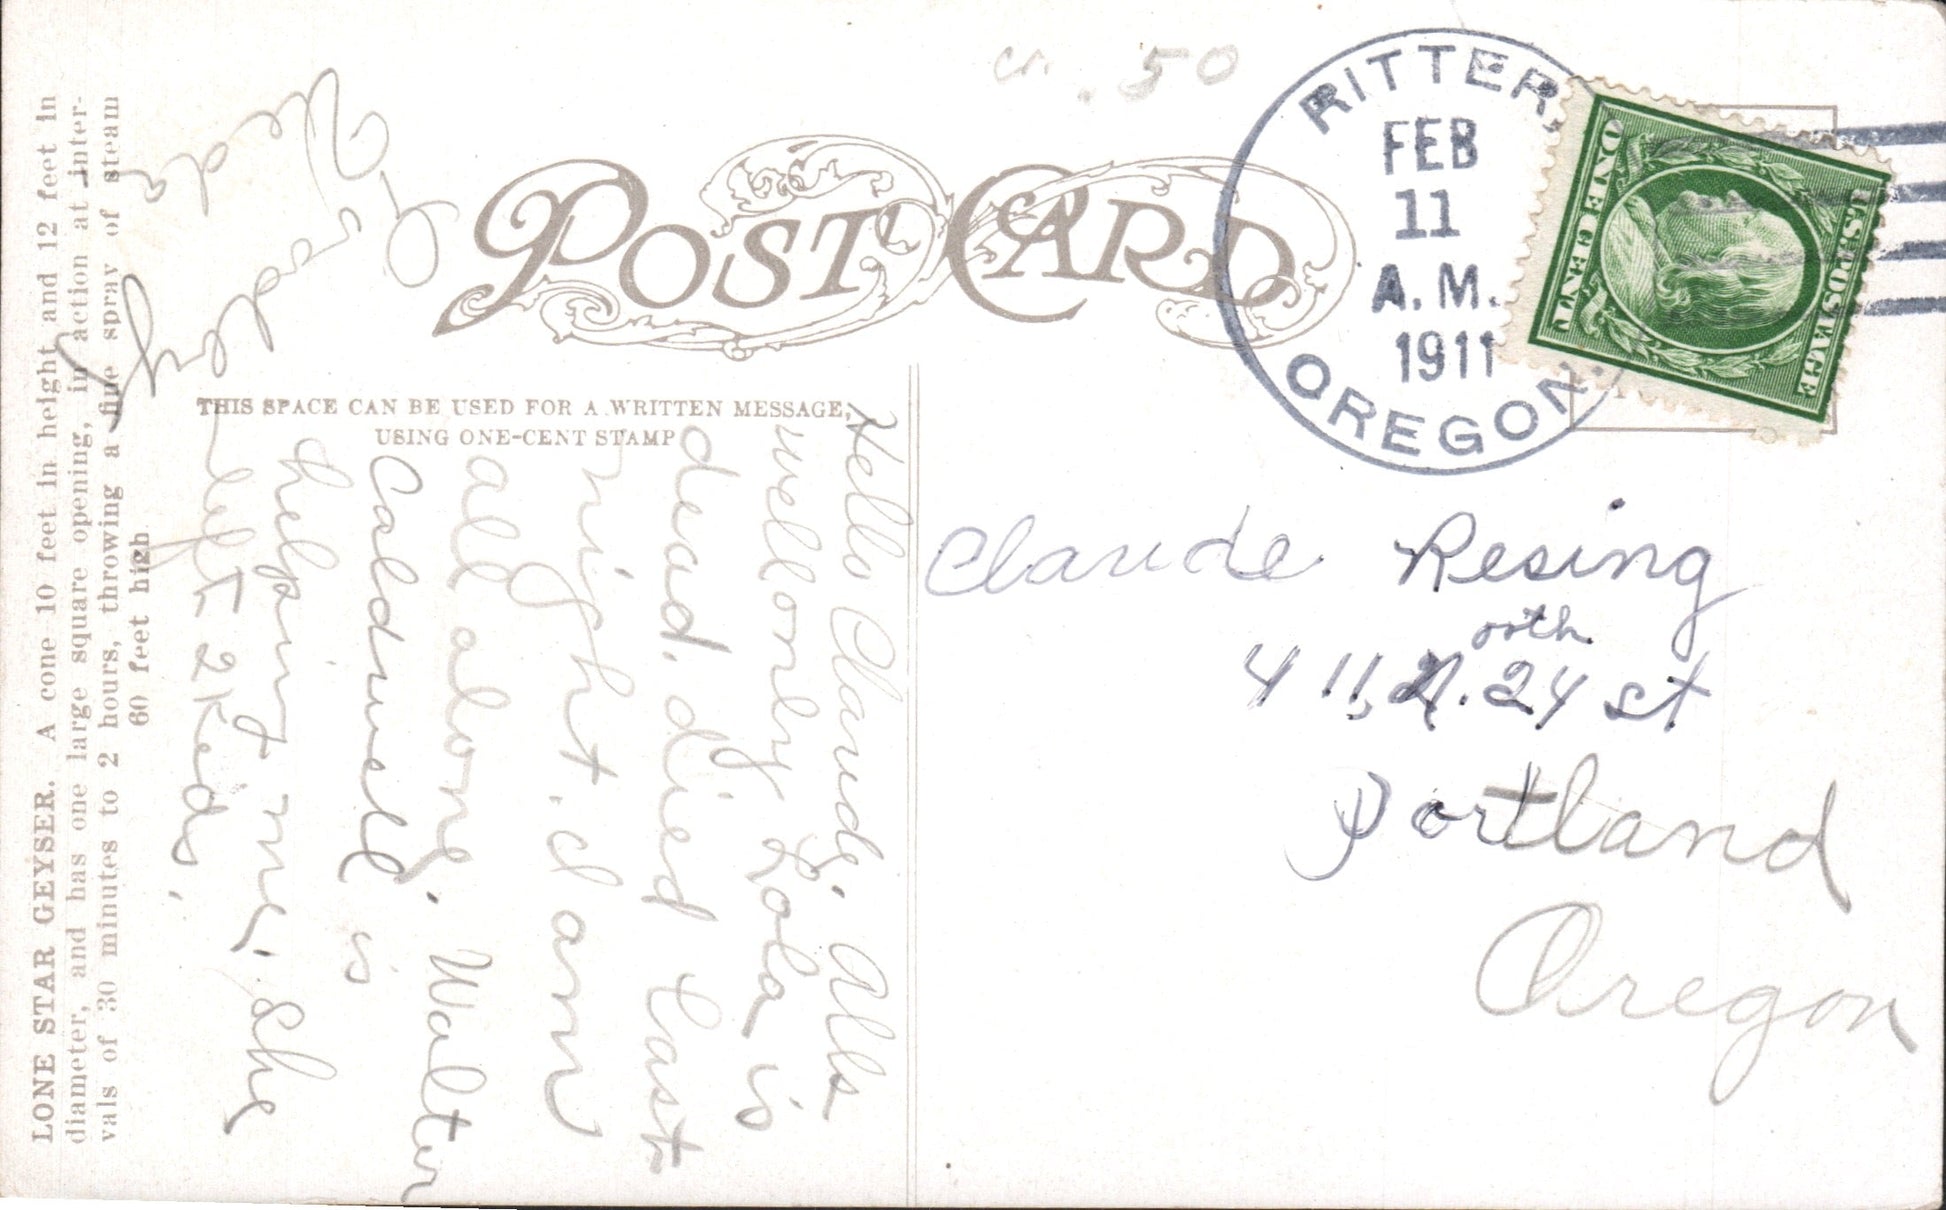 cr. .50
POST CARD
RITTER,
FEB
11
A.M.
1911
OREGON.
U.S. POSTAGE
ONE CENT
THIS SPACE CAN BE USED FOR A WRITTEN MESSAGE,
USING ONE-CENT STAMP
Hello Claude. Alls
well only Lola is
dead. died Last
night. I am
all alone. Walter
Caldwell is
helping me. She
left 2 Keids.
Claude Resing
orth
411, N. 24 st
Portland
Oregon
LONE STAR GEYSER. A cone 10 feet in height and 12 feet in
diameter, and has one large square opening, in action at inter-
vals of 30 minutes to 2 hours, throwing a fine spray of steam
60 feet high